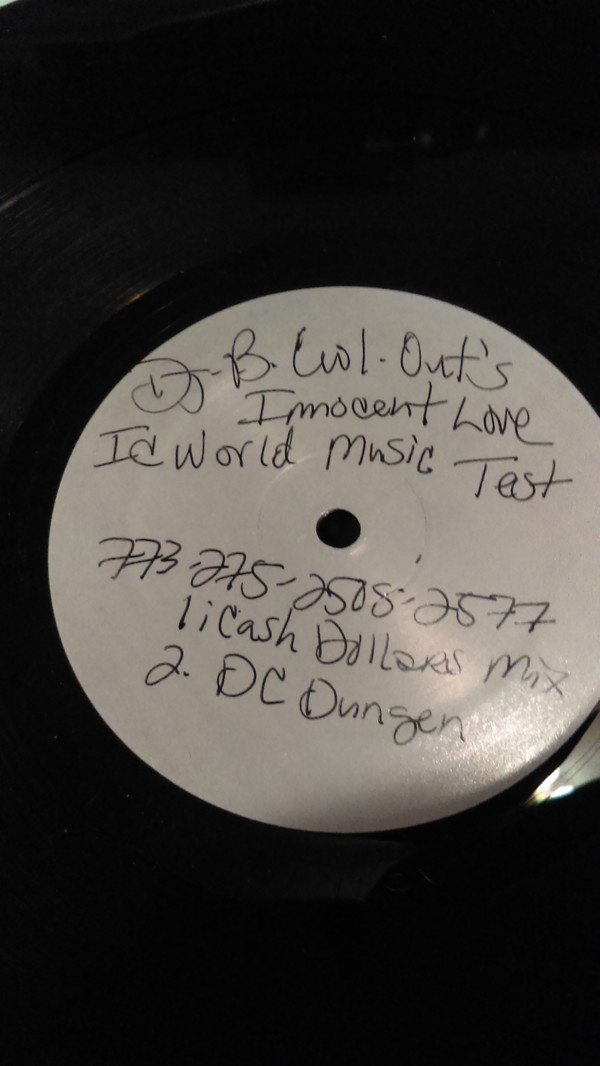 DJ-B. Cool. Out's
Innocent Love
Id World Music Test
773-275-2508-2577
1. Cash Dollars Mix
2. DC Dungen